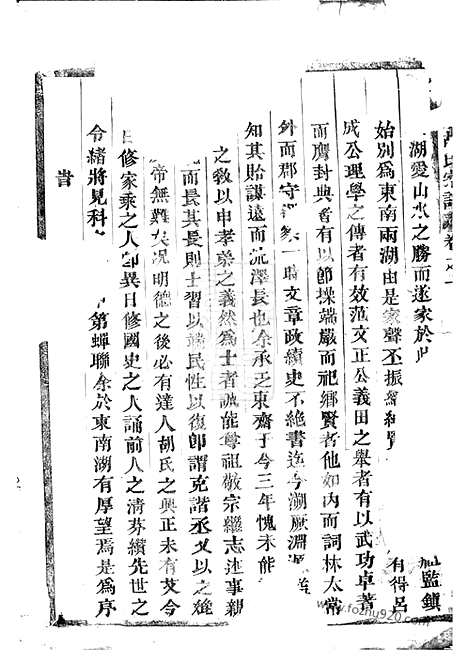 氏宗譜卷之一
監鎮
有得呂
湖愛山水之勝而遂家於
始別為東南兩湖由是家聲丕振
成公理學之傳者有效范文正公義田之舉者有以武功卓著
而膺封典者有以節操端嚴而祀鄉賢者他如內而詞林太常
外而郡守 一時文章政績史不絕書迄今溯厥淵
知其貽謀遠而流澤長也余承乏東齋于今三年愧未能
之敎以申孝弟之義然為士者誠能尊祖敬宗繼志述事親
而長其長則士習以端民性以復卽謂克諧丞乂以之
帝無難矣况明德之後必有達人胡氏之興正未有艾今
修家乘之人卽異日修國史之人誦前人之清芬纘先世之
令緒將見科 第蟬聯余於東南湖有厚望焉是為序
旹
www.fozhu920.com